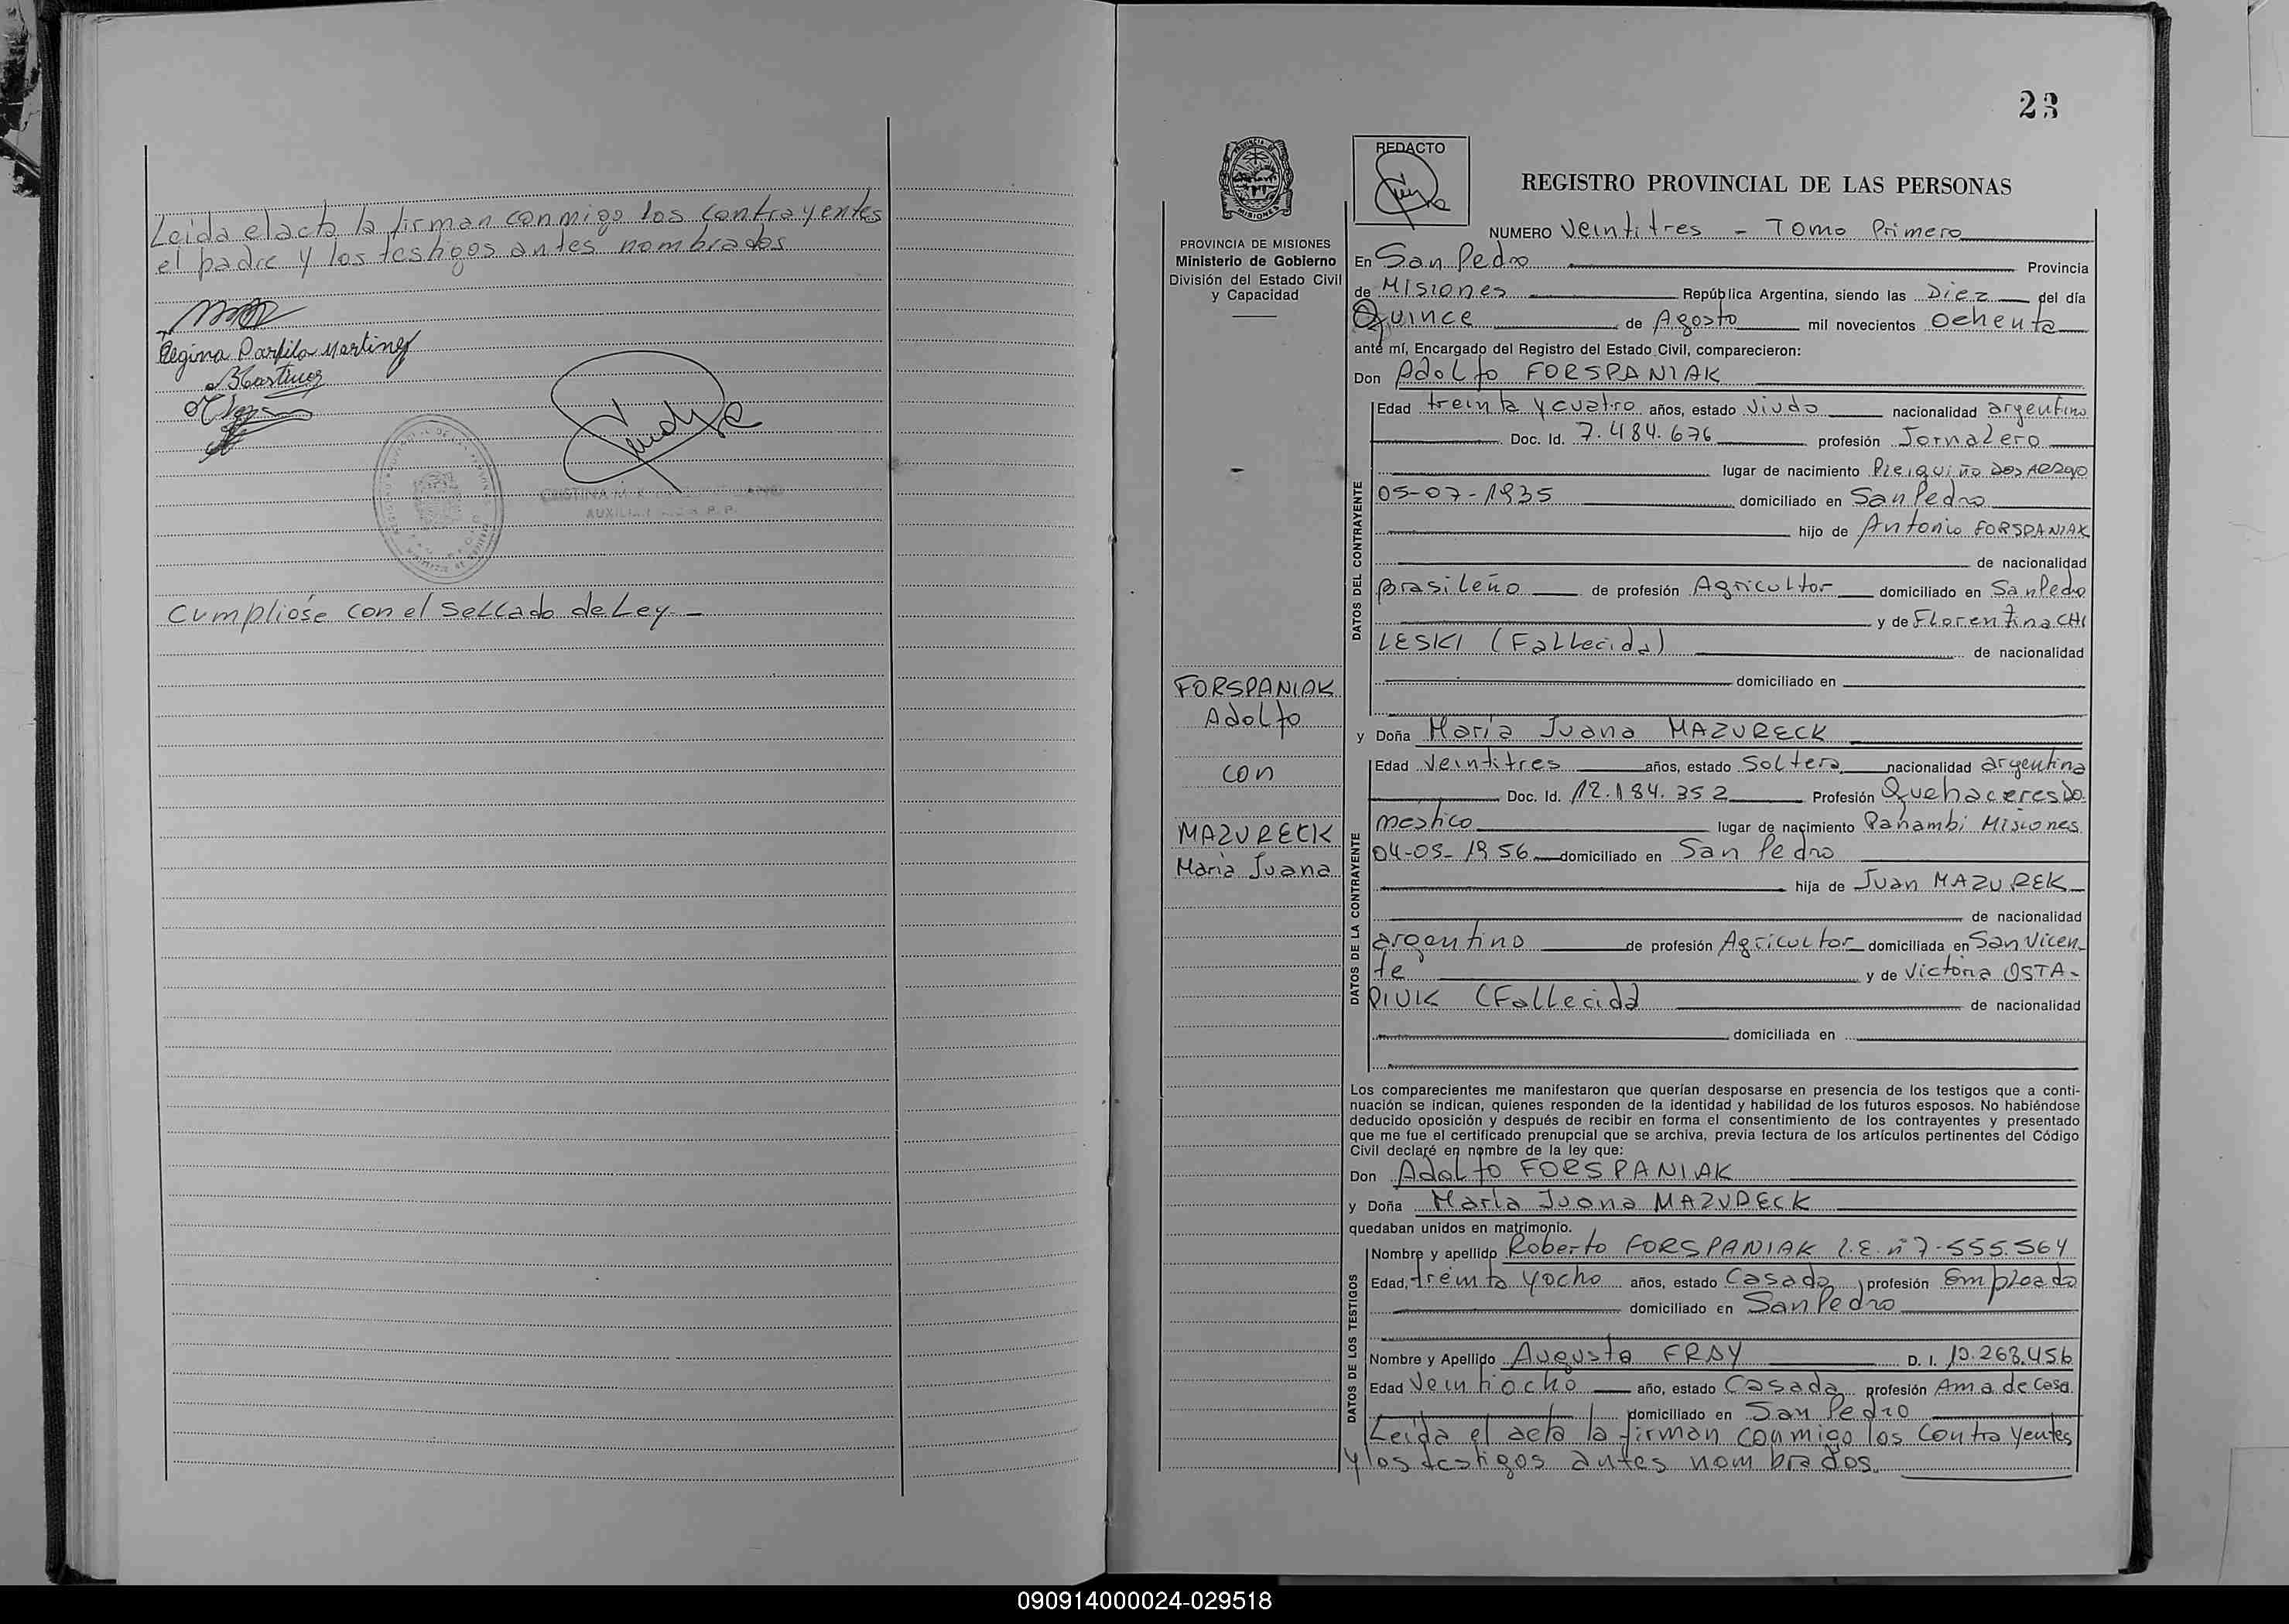 Leida el acta la firman conmigo los contrayentes
el padre y los testigos antes nombrados
Regina Martinez
Cumpliose con el Sellado de Ley -
23
REDACTO
REGISTRO PROVINCIAL DE LAS PERSONAS
NUMERO Veintitres - Tomo Primero
PROVINCIA DE MISIONES
Ministerio de Gobierno
División del Estado Civil
y Capacidad
En San Pedro Provincia
de Misiones República Argentina, siendo las Diez del día
Quince de Agosto mil novecientos Ochenta
ante mí, Encargado del Registro del Estado Civil, comparecieron:
Don Adolfo FORSPANIAK
DATOS DEL CONTRAYENTE
Edad treinta y cuatro años, estado Viudo nacionalidad argentino
Doc. Id. 7.484.676 profesión Jornalero
lugar de nacimiento
05-07-1935 domiciliado en San Pedro
hijo de Antonio FORSPANIAK
de nacionalidad
Brasileño de profesión Agricultor domiciliado en San Pedro
y de Florentina CHI
LESKI (Fallecida) de nacionalidad
domiciliado en
FORSPANIAK
Adolfo
con
MAZURECK
Maria Juana
y Doña María Juana MAZURECK
DATOS DE LA CONTRAYENTE
Edad Veintitres años, estado Soltera nacionalidad argentina
Doc. Id. 12.184.352 Profesión Quehaceres Do
mestico lugar de nacimiento Panambi Misiones
04-05-1956 domiciliado en San Pedro
hija de Juan MAZUREK
de nacionalidad
argentino de profesión Agricultor domiciliada en San Vicen
te y de Victoria OSTA-
PIUK (Fallecida de nacionalidad
domiciliada en
Los comparecientes me manifestaron que querían desposarse en presencia de los testigos que a conti-
nuación se indican, quienes responden de la identidad y habilidad de los futuros esposos. No habiéndose
deducido oposición y después de recibir en forma el consentimiento de los contrayentes y presentado
que me fue el certificado prenupcial que se archiva, previa lectura de los artículos pertinentes del Código
Civil declaré en nombre de la ley que:
Don Adolfo FORSPANIAK
y Doña María Juana MAZURECK
quedaban unidos en matrimonio.
DATOS DE LOS TESTIGOS
Nombre y apellido Roberto FORSPANIAK L.E. nº 7.555.564
Edad, treinta y ocho años, estado Casado profesión Empleado
domiciliado en San Pedro
Nombre y Apellido Augusta FRAY D. I. 10.263.456
Edad Veintiocho año, estado Casada profesión Ama de Casa
domiciliado en San Pedro
Leida el acta la firman conmigo los Contrayentes
y los testigos antes nombrados.
090914000024-029518